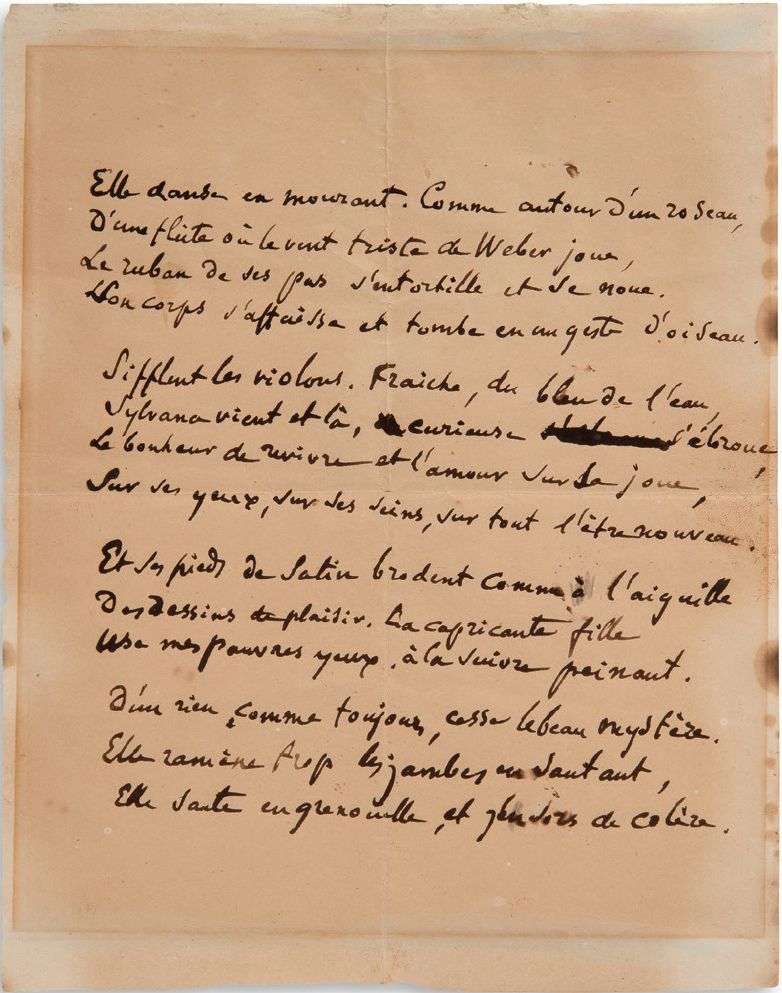 Elle danse en mourant. Comme autour d'un roseau,
D'une flûte où le vent triste de Weber joue,
Le ruban de ses pas s'entortille et se noue.
Son corps s'affaisse et tombe en un geste d'oiseau.
Sifflent les violons. Fraiche, du bleu de l'eau,
Sylvana vient et là, curieuse s'ébroue,
Le bonheur de revivre et l'amour sur sa joue,
Sur ses yeux, sur ses seins, sur tout l'être nouveau.
Et ses pieds de satin brodent comme à l'aiguille
Des dessins de plaisir. La capricante fille
Use mes pauvres yeux, à la suivre peinant.
D'un rien, comme toujours, cesse le beau mystère.
Elle ramène trop les jambes en sautant,
Elle saute en grenouille, et j'en sors de colère.